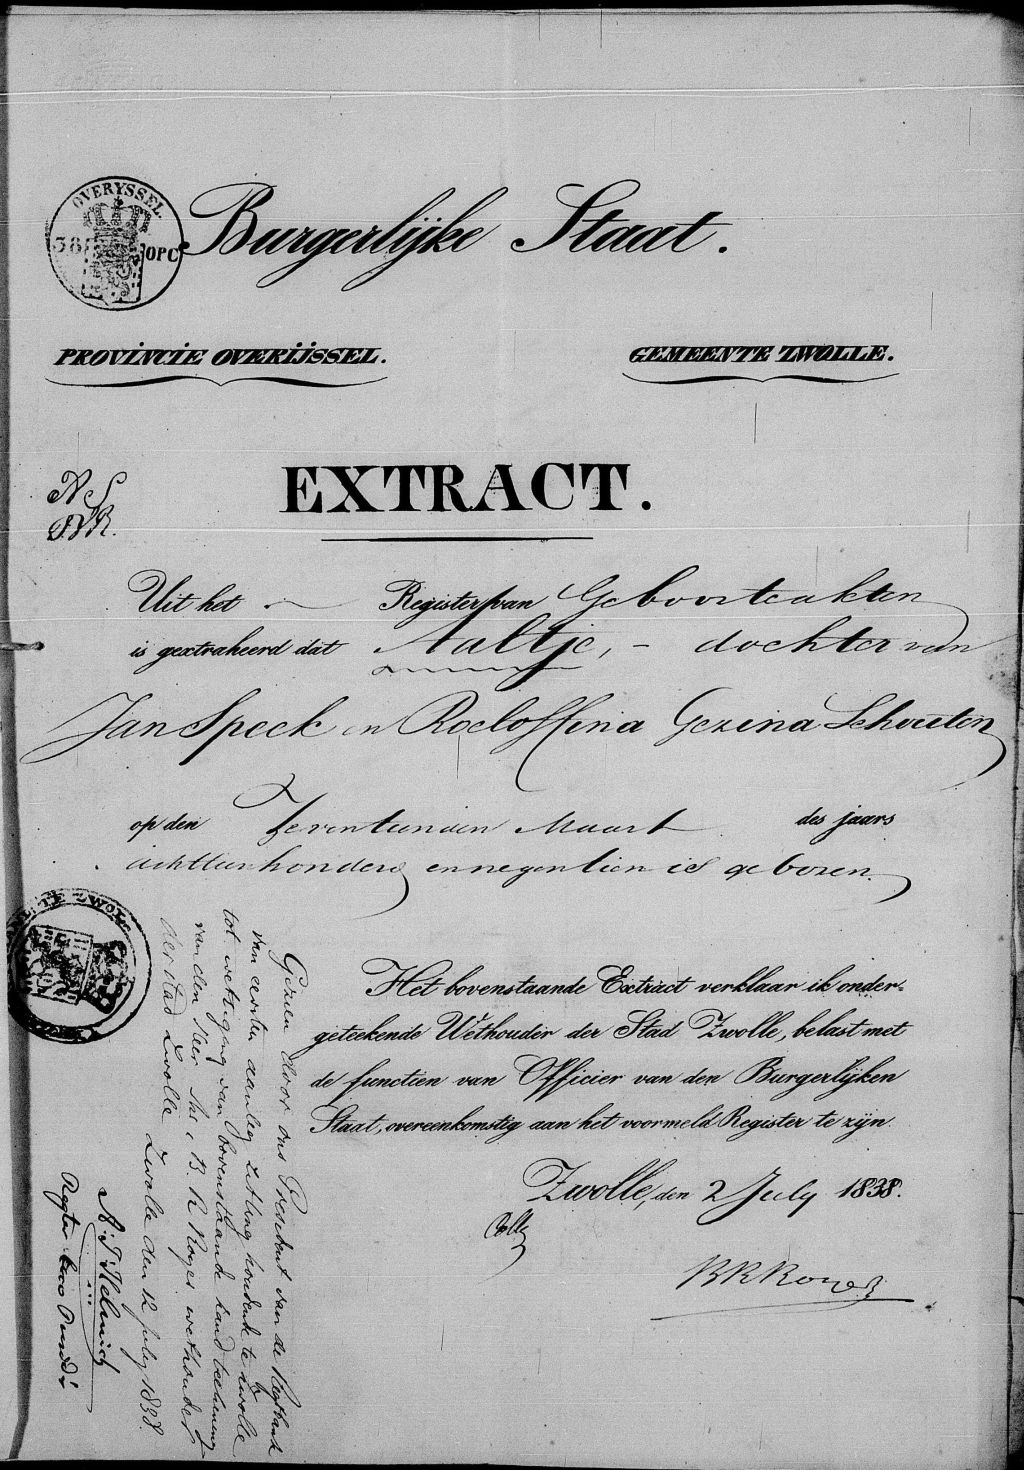 OVERYSSEL.
38 OPC
Burgerlijke Staat.
PROVINCIE OVERIJSSEL.
GEMEENTE ZWOLLE.
EXTRACT.
Uit het Register van Geboorteakten
is geextraheerd dat Aaltje, dochter van
Jan Speek en Roeloffina Gezina Schouten
op den Zeventienden Maart des jaars
achttienhonderd en negentien is geboren.
Het bovenstaande Extract verklaar ik onder-
geteekende Wethouder der Stad Zwolle, belast met
de functien van Officier van den Burgerlijken
Staat, overeenkomstig aan het voormeld Register te zijn
Zwolle, den 2 July 1838.
Colle
Gezien door ons President van de Regtbank
van eersten aanleg zitting houdende te Zwolle
tot wettiging van bovenstaande handteekening
van den Heer B. R. Royer wethouder
der stad Zwolle
Zwolle den 12 July 1838.